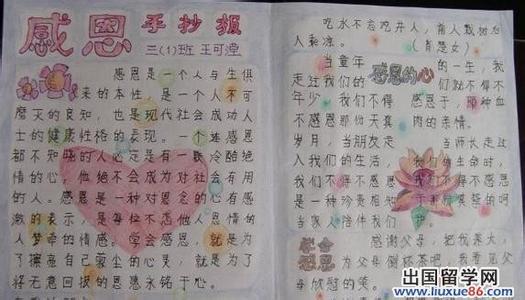 感恩
手抄报
三(1)班 王可滢
感恩是一个人与生俱
来的本性,是一个人不可
磨灭的良知,也是现代社会成功人
士的健康性格的表现。一个连感恩
都不知晓的人必定是有一颗冷酷绝
情的心,他绝不会成为对社会有用
的人。感恩是一种对恩惠心存感
激的表示,是每位不忘他人恩情的
人萦绕的情感。学会感恩,就是为
了擦亮自己蒙尘的心灵,就是为了
将无意回报的恩惠永铭于心。
吃水不忘挖井人,前人栽树后
人乘凉。
感恩的心
当童年的一生,我
走过我们的们就不得不
年少我们不得感恩于,那种血
不感恩那份天真肉的亲情。
岁月,当朋友走当师长走过
入我们的生活,我们的生命时,
我们不得不感恩我们不得不感恩
当人家陪伴我们
学会
感恩
感谢父母,把我养大,
为父母倒杯茶吧,
父母欣慰的笑。
出国留学网
www.liuxue86.com